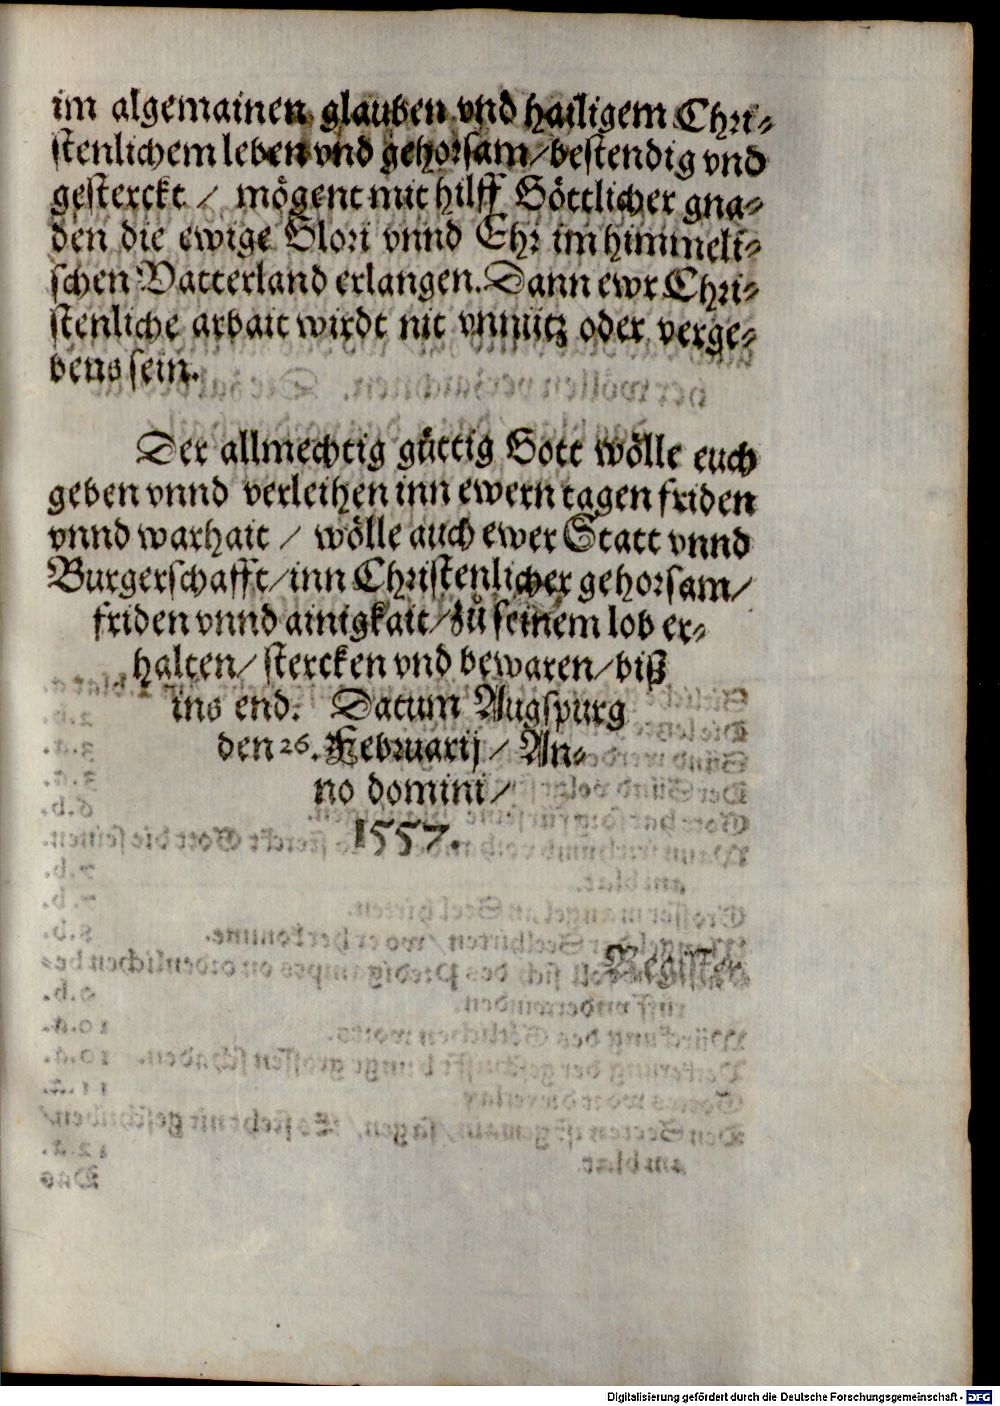 im algemainen glauben vnd hailigem Chri⸗
stenlichem leben vnd gehorsam/bestendig vnd
gesterckt / mögent mit hilff Göttlicher gna⸗
den die ewige Glori vnnd Ehr im himmeli⸗
schen Vatterland erlangen. Dann ewr Chri⸗
stenliche arbait wirdt nit vnnütz oder verge⸗
bens sein.
Der allmechtig güttig Gott wölle euch
geben vnnd verleihen inn ewern tagen friden
vnnd warhait / wölle auch ewer Statt vnnd
Burgerschafft/inn Christenlicher gehorsam/
friden vnnd ainigkait/zů seinem lob er⸗
halten/ stercken vnd bewaren/biß
ins end. Datum Augspurg
den 26. Februarij / An⸗
no domini /
1557.
Register
Digitalisierung gefördert durch die Deutsche Forschungsgemeinschaft - DFG